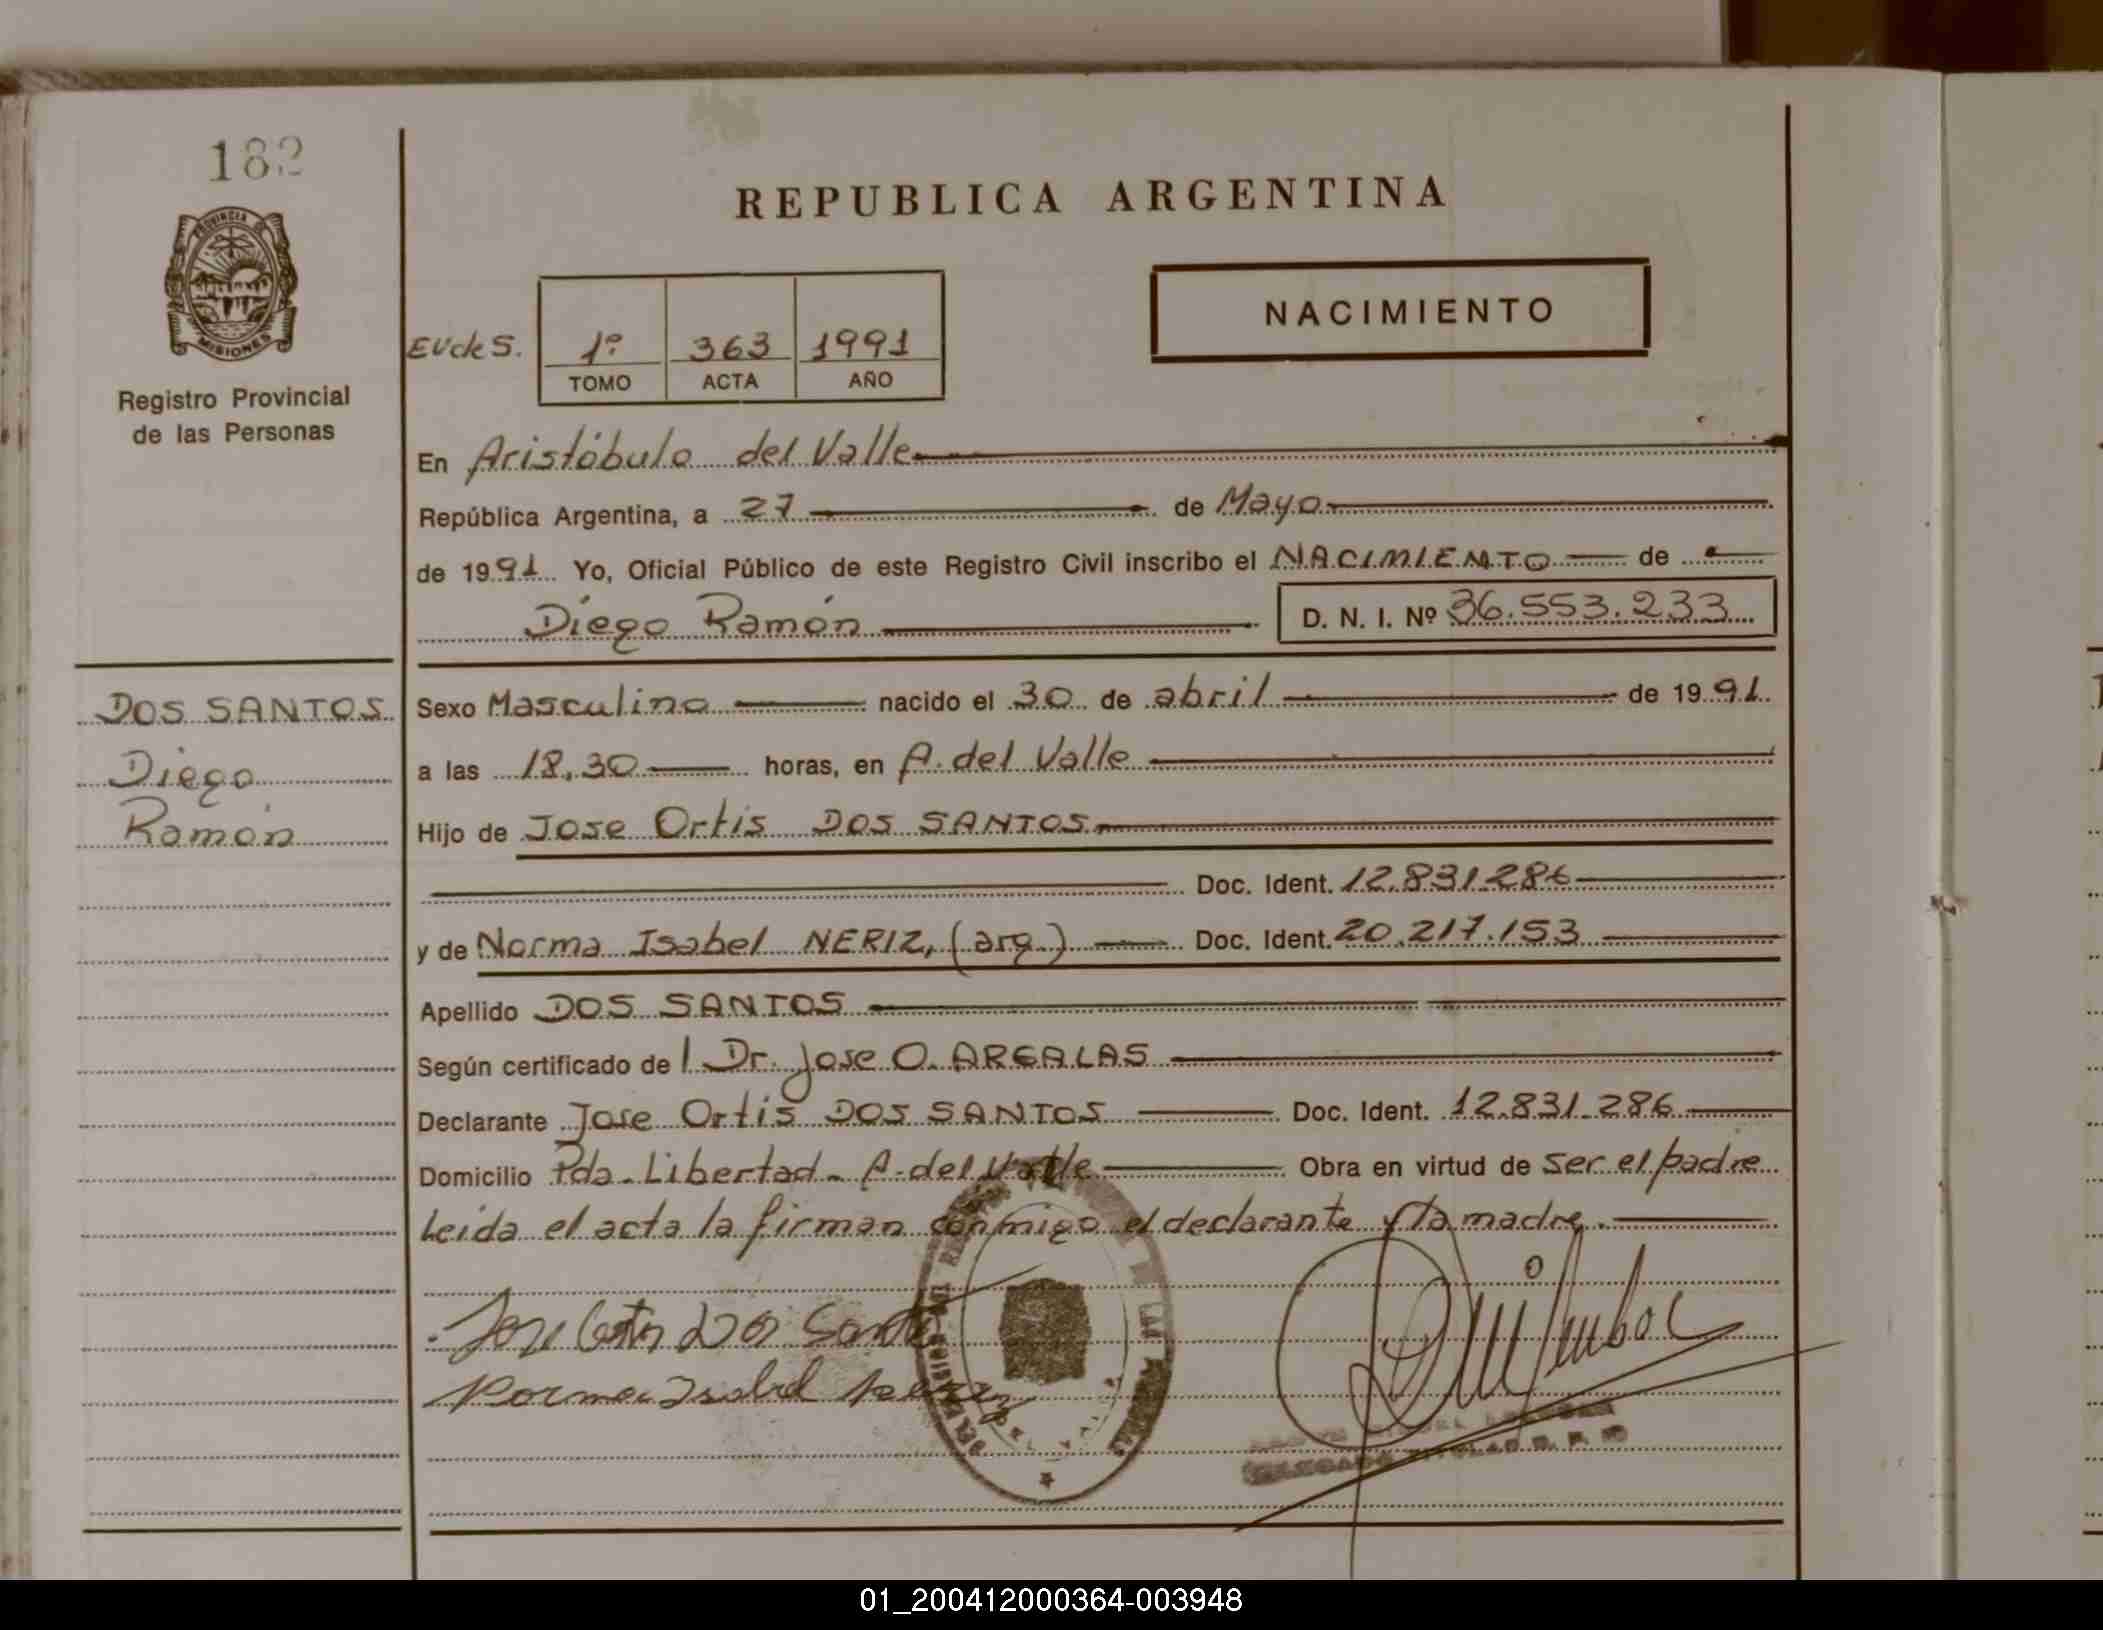 182
PROVINCIA DE
MISIONES
Registro Provincial
de las Personas
REPUBLICA ARGENTINA
NACIMIENTO
1º 363 1991
TOMO ACTA AÑO
En Aristóbulo del Valle
República Argentina, a 27 de Mayo
de 1991 Yo, Oficial Público de este Registro Civil inscribo el NACIMIENTO de
Diego Ramón D. N. I. Nº 36.553.233
DOS SANTOS
Diego
Ramón
Sexo Masculino nacido el 30 de abril de 1991
a las 18,30 horas, en A. del Valle
Hijo de Jose Ortis DOS SANTOS
Doc. Ident. 12.831.286
y de Norma Isabel NERIZ, (arg.) Doc. Ident. 20.217.153
Apellido DOS SANTOS
Según certificado de l Dr. Jose O. ARGALAS
Declarante Jose Ortis DOS SANTOS Doc. Ident. 12.831.286
Domicilio Pda. Libertad - A. del Valle Obra en virtud de ser el padre
Leida el acta la firman conmigo el declarante y la madre.
Jose Ortis Dos Santos
Norma Isabel Neriz
01_200412000364-003948